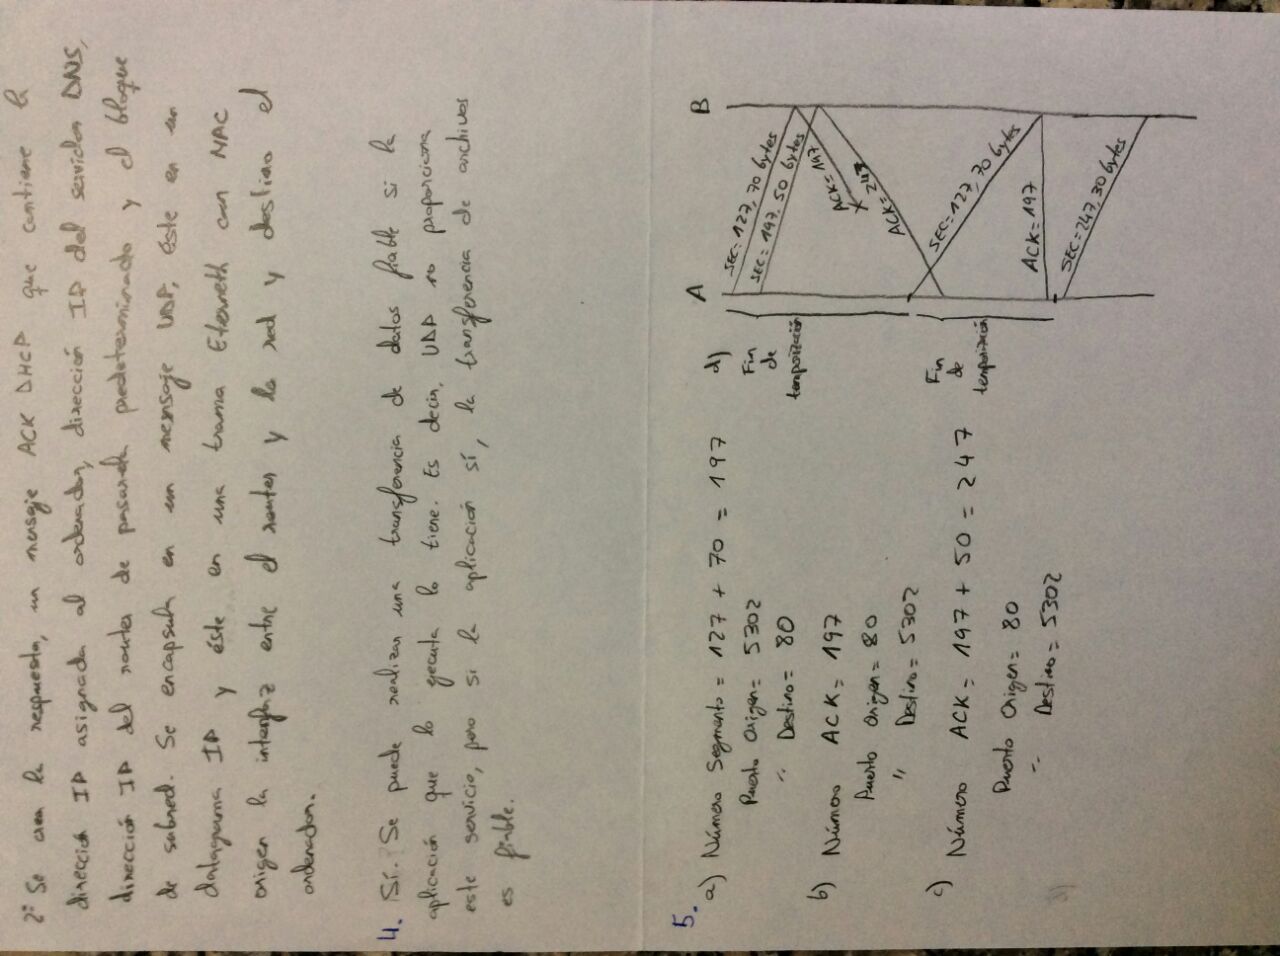 2º Se crea la respuesta, un mensaje ACK DHCP que contiene la
dirección IP asignada al ordenador, dirección IP del servidor DNS,
dirección IP del router de pasarela predeterminado y el bloque
de subred. Se encapsula en un mensaje UDP, éste en un
datagrama IP y éste en una trama Eterneth con MAC
origen la interfaz entre el router y la red y destino el
ordenador.
4. Sí. Se puede realizar una transferencia de datos fiable si la
aplicación que lo ejecuta lo tiene. Es decir, UDP no proporciona
este servicio, pero si la aplicación sí, la transferencia de archivos
es fiable.
5.
a) Número Segmento = 127 + 70 = 197
Puerto Origen = 5302
" Destino = 80
b) Número ACK = 197
Puerto Origen = 80
" Destino = 5302
c) Número ACK = 197 + 50 = 247
Puerto Origen = 80
" Destino = 5302
d)
A
B
SEC = 127, 70 bytes
SEC = 197, 50 bytes
ACK = 197
X
ACK = 247
Fin
de
temporización
SEC = 127, 70 bytes
ACK = 197
Fin
de
temporización
SEC = 247, 30 bytes